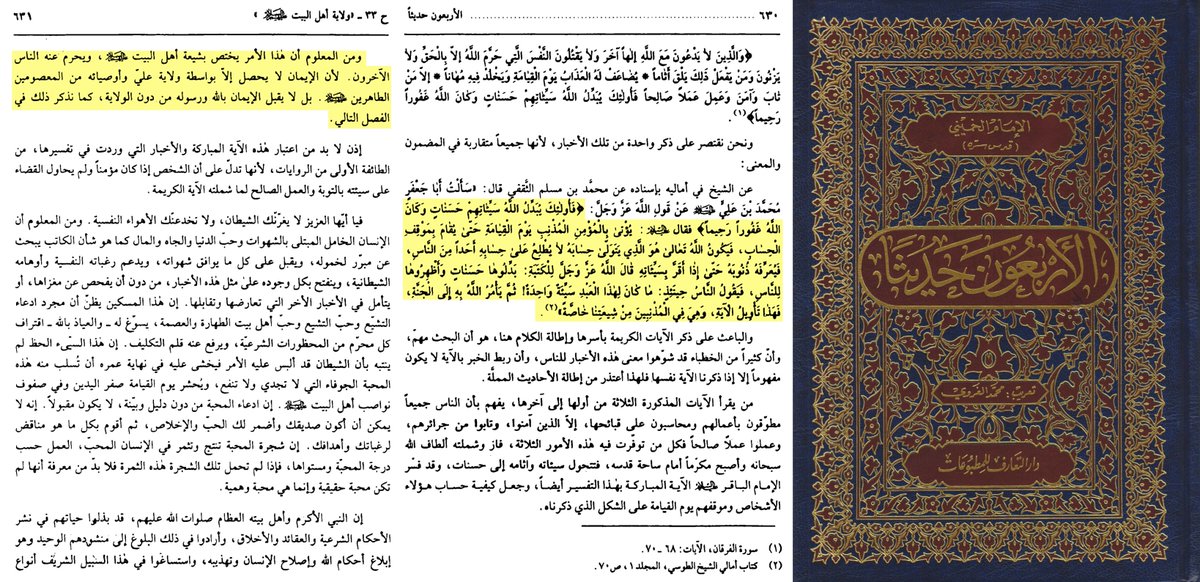 الإمام الخميني
(قدس سره)
الأربعون حديثا
تعريب: محمد الغروي
دار التعارف للمطبوعات
٦٣٠ ........ الأربعون حديثاً
﴿وَالَّذِينَ لاَ يَدْعُونَ مَعَ اللَّهِ إِلهاً آخَرَ وَلاَ يَقْتُلُونَ النَّفْسَ الَّتِي حَرَّمَ اللَّهُ إلاَّ بِالْحَقِّ وَلاَ
يَزْنُونَ وَمَنْ يَفْعَلْ ذَلِكَ يَلْقَ أَثَاماً * يُضَاعَفْ لَهُ الْعَذَابُ يَوْمَ الْقِيَامَةِ وَيَخْلُدْ فِيهِ مُهَاناً * إلاَّ مَنْ
تَابَ وَآمَنَ وَعَمِلَ عَمَلاً صَالِحاً فَأُولئِكَ يُبَدِّلُ اللَّهُ سَيِّئَاتِهِمْ حَسَنَاتٍ وَكَانَ اللَّهُ غَفُوراً
رَحِيماً﴾(١).
ونحن نقتصر على ذكر واحدة من تلك الأخبار، لأنها جميعاً متقاربة في المضمون
والمعنى:
عن الشيخ في أماليه بإسناده عن محمَّد بن مسلم الثَّقفي قال: «سَأَلْتُ أَبَا جَعْفَرٍ
مُحَمَّدَ بْنَ عَلِيٍّ عَنْ قَولِ اللَّهِ عَزَّ وَجَلَّ: ﴿فَأُولَئِكَ يُبَدِّلُ اللَّهُ سَيِّئَاتِهِمْ حَسَنَاتٍ وَكَانَ
اللَّهُ غَفُوراً رَحِيماً﴾ فقال: يُؤتَىٰ بِالْمُؤْمِنِ الْمُذنِبِ يَوْمَ الْقِيَامَةِ حَتَّىٰ يُقَامَ بِمَوْقِفِ
الْحِسَابِ، فَيَكُونُ اللَّهُ تَعَالىٰ هُوَ الَّذِي يَتَوَلَّىٰ حِسَابَهُ لاَ يُطْلِعُ عَلىٰ حِسَابِهِ أَحَداً مِنَ النَّاسِ،
فَيُعَرِّفُهُ ذُنُوبَهُ حَتَّىٰ إذَا أَقَرَّ بِسَيِّئَاتِهِ قَالَ اللَّهُ عَزَّ وَجَلَّ لِلْكَتَبَةِ: بَدِّلُوهَا حَسَنَاتٍ وَأَظْهِرُوهَا
لِلنَّاسِ، فَيَقُولُ النَّاسُ حِينَئِذٍ: مَا كَانَ لِهٰذَا الْعَبْدِ سَيِّئَةٌ وَاحِدَةٌ! ثُمَّ يَأْمُرُ اللَّهُ بِهِ إلَى الْجَنَّةِ،
فَهٰذَا تَأوِيلُ الآيَةِ، وَهِيَ فِي الْمُذْنِبِينَ مِنْ شِيعَتِنَا خَاصَّةً»(٢).
والباعث على ذكر الآيات الكريمة بأسرها وإطالة الكلام هنا، هو أن البحث مهمّ،
وأنّ كثيراً من الخطباء قد شوّهوا معنى هذه الأخبار للناس، وأن ربط الخبر بالآية لا يكون
مفهوماً إلا إذا ذكرنا الآية نفسها فلهذا أعتذر من إطالة الأحاديث المملَّة.
من يقرأ الآيات المذكورة الثلاثة من أولها إلى آخرها، يفهم بأن الناس جميعاً
مطوّقون بأعمالهم ومحاسبون على قبائحها، إلاَّ الذين آمنوا، وتابوا من جرائرهم،
وعملوا عملاً صالحاً فكل من توفّرت فيه هذه الأمور الثلاثة، فاز وشملته ألطاف الله
سبحانه وأصبح مكرّماً أمام ساحة قدسه، فتتحول سيئاته وآثامه إلى حسنات، وقد فسّر
الإمام الباقر الآية المباركة بهذا التفسير أيضاً، وجعل كيفية حساب هؤلاء
الأشخاص وموقفهم يوم القيامة على الشكل الذي ذكرناه.
(١) سورة الفرقان، الآيات: ٦٨ ـ ٧٠.
(٢) كتاب أمالي الشيخ الطوسي، المجلد ١، ص٧٠.
ح ٣٣ ـ «ولاية أهل البيت» ٦٣١
ومن المعلوم أن هذا الأمر يختص بشيعة أهل البيت، ويحرم عنه الناس
الآخرون. لأن الإيمان لا يحصل إلاّ بواسطة ولاية عليّ وأوصيائه من المعصومين
الطاهرين. بل لا يقبل الإيمان بالله ورسوله من دون الولاية، كما نذكر ذلك في
الفصل التالي.
إذن لا بد من اعتبار هذه الآية المباركة والأخبار التي وردت في تفسيرها، من
الطائفة الأولى من الروايات، لأنها تدلّ على أن الشخص إذا كان مؤمناً ولم يحاول القضاء
على سيئته بالتوبة والعمل الصالح لما شملته الآية الكريمة.
فيا أيّها العزيز لا يغرّنّك الشيطان، ولا تخدعنّك الأهواء النفسية. ومن المعلوم أن
الإنسان الخامل المبتلى بالشهوات وحبّ الدنيا والجاه والمال كما هو شأن الكاتب يبحث
عن مبرّر لخموله، ويقبل على كل ما يوافق شهواته، ويدعم رغباته النفسية وأوهامه
الشيطانية، وينفتح بكل وجوده على مثل هذه الأخبار، من دون أن يفحص عن مغزاها، أو
يتأمل في الأخبار الأخر التي تعارضها وتقابلها. إن هذا المسكين يظنّ أن مجرد ادعاء
التشيّع وحبّ التشيع وحبّ أهل بيت الطهارة والعصمة، يسوّغ له ـ والعياذ بالله ـ اقتراف
كل محرّم من المحظورات الشرعيّة، ويرفع عنه قلم التكليف. إن هذا السيّىء الحظ لم
ينتبه بأن الشيطان قد ألبس عليه الأمر فيخشى عليه في نهاية عمره أن تُسلب منه هذه
المحبة الجوفاء التي لا تجدي ولا تنفع، ويُحشر يوم القيامة صفر اليدين وفي صفوف
نواصب أهل البيت. إن ادعاء المحبة من دون دليل وبيّنة، لا يكون مقبولاً. إنه لا
يمكن أن أكون صديقك وأضمر لك الحبّ والإخلاص، ثم أقوم بكل ما هو مناقض
لرغباتك وأهدافك. إن شجرة المحبة تنتج وتثمر في الإنسان المحبّ، العمل حسب
درجة المحبّة ومستواها، فإذا لم تحمل تلك الشجرة هذه الثمرة فلا بدّ من معرفة أنها لم
تكن محبة حقيقية وإنما هي محبة وهمية.
إن النبي الأكرم وأهل بيته العظام صلوات الله عليهم، قد بذلوا حياتهم في نشر
الأحكام الشرعية والعقائد والأخلاق، وأرادوا في ذلك البلوغ إلى منشودهم الوحيد وهو
إبلاغ أحكام الله وإصلاح الإنسان وتهذيبه، واستساغوا في هذا السبيل الشريف أنواع